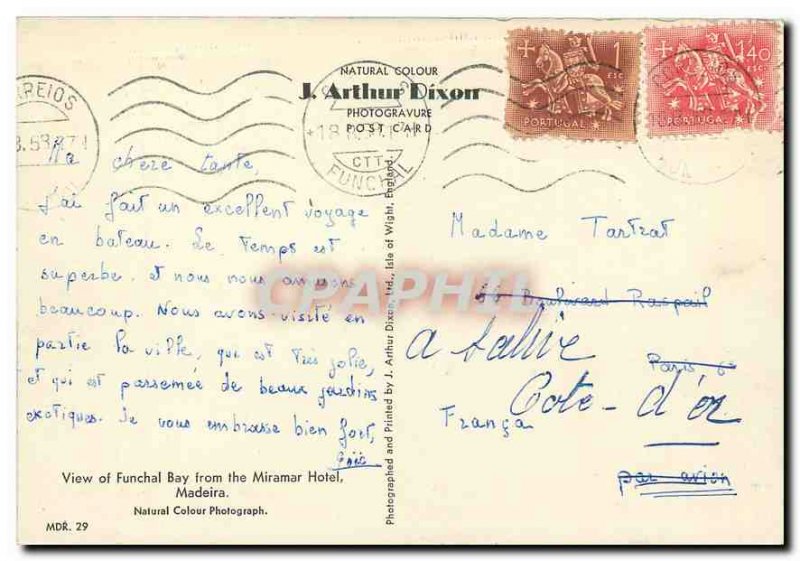 NATURAL COLOUR
J. Arthur Dixon
PHOTOGRAVURE
POST CARD
1 ESC
PORTUGAL
1$40
PORTUGAL
CTT
FUNCHAL
Ma chère tante,
J'ai fait un excellent voyage
en bateau. Le temps est
superbe et nous nous amusons
beaucoup. Nous avons visité en
partie la ville, qui est très jolie,
et qui est parsemée de beaux jardins
exotiques. Je vous embrasse bien fort,
Madame Tartrat
Boulevard Raspail
Paris 6e
a
Cote-d'or
França
par avion
View of Funchal Bay from the Miramar Hotel,
Madeira.
Natural Colour Photograph.
MDR. 29
Photographed and Printed by J. Arthur Dixon, Ltd., Isle of Wight, England.
CPAPHIL